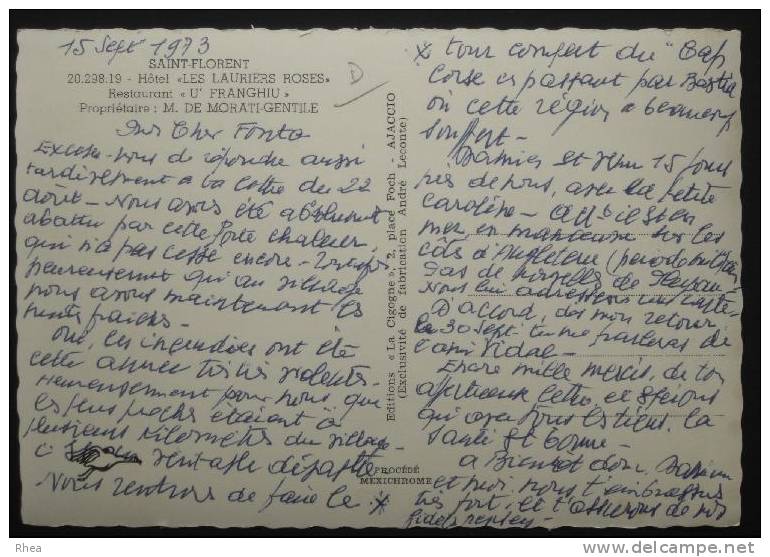 15 Sept 1973
SAINT-FLORENT
20.298.19 - Hôtel «LES LAURIERS ROSES»
Restaurant « U' FRANGHIU »
Propriétaire : M. DE MORATI-GENTILE
D
Cher
Excusez-nous de répondre aussi
tardivement à ta lettre du 22
août - Nous avons été absolument
abattu par cette forte chaleur,
qui n'a pas cessé encore -
heureusement qu'au village
nous avons maintenant les
nuits fraîches -
Oui, les incendies ont été
cette année très très violents -
Heureusement pour nous que
les plus proches étaient à
plusieurs kilomètres du village
véritable désastre
Nous rentrons de faire le *
Editions « La Cigogne », 2, place Foch - AJACCIO
(Exclusivité de fabrication André Leconte)
PROCÉDÉ
MEXICHROME
* tour complet du "Cap
Corse en passant par Bastia
où cette région a beaucoup
souffert -
est venu 15 jours
près de nous, avec la petite
Caroline - est en
mer en manoeuvre sur les
côtes d'Angleterre
Pas de nouvelles de
Nous lui adressons une carte -
D'accord, dès mon retour
le 30 Sept. tu me parleras de
l'ami Vidal -
Encore mille mercis, de ton
affectueuse lettre, et espérons
que pour tous les tiens, la
santé est bonne -
à Bientôt donc,
et moi, nous t'embrassons
très fort, et t'assurons de nos
Rhea
www.delcampe.net